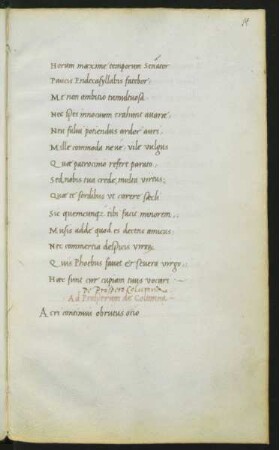 14
Horum maxime temporum Senator
Paucis Endecasyllabis fatebor
Me non ambitio tumultuosa
Nec spes innocuum trahunt avarae
Nec fulvi potiendus ardor auri
Mille commoda neve vile vulgus
Quae patrocinio refert parum
Sed nobis tua crede multa virtus
Quae te sordibus ut carere saecli
Sic quemcunque tibi facis minorem
Musis adde quod es dectus amicus
Nec commercia despicis virgo
Quis Phoebus favet et severa virgo
Haec sunt cur cupiam tuus vocari
De Prospero Columna
Ad Prosperum de Columna
Acri continuus obrutus ocio